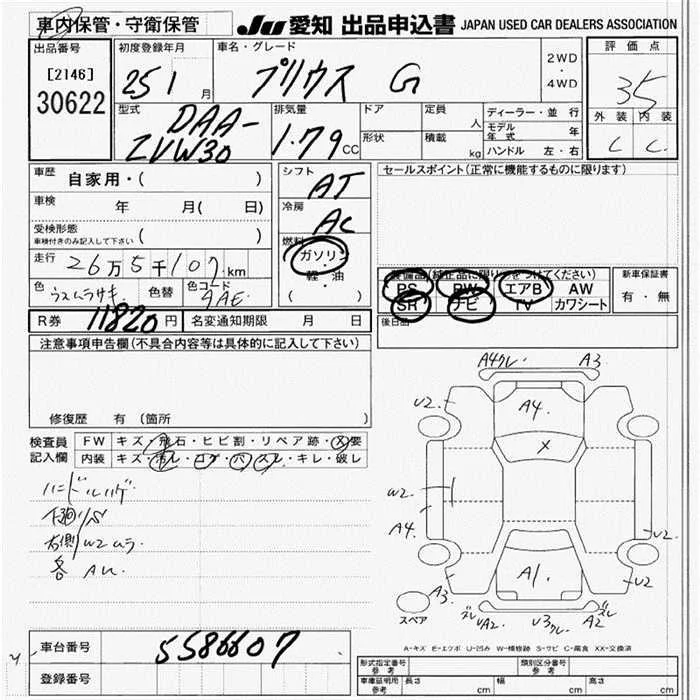 車内保管・守衛保管
JU 愛知 出品申込書 JAPAN USED CAR DEALERS ASSOCIATION
出品番号
[2146]
30622
初度登録年月
25 1 月
車名・グレード
プリウス G
2WD
・
4WD
評価点
35
外装 内装
C C
型式
DAA-
ZVW30
排気量
1.79 CC
ドア
形状
定員 人
積載 kg
ディーラー・並行
モデル年式 年
ハンドル 左・右
車歴
自家用・( )
車検 年 月( 日)
受検形態
車検付きのみ記入して下さい ( )
走行 26万5千107km
色 うスムラサキ 色替 色コード
R券 11820円 名変通知期限 月 日
シフト
AT
冷房
AC
燃料
ガソリン
・
軽・油
( )
セールスポイント(正常に機能するものに限ります)
装備品(純正品に限り○をつけてください)
PS PW エアB AW
SR ナビ TV カワシート
新車保証書
有・無
後日品
注意事項申告欄(不具合内容等は具体的に記入して下さい)
修復歴 有(箇所 )
検査員
記入欄
FW キズ・飛石・ヒビ割・リペア跡・X要
内装 キズ・汚レ・コゲ・穴・スレ・キレ・破レ
ハンドルハゲ
下廻りS
右側W2ムラ
各AU
A4クレ A3
U2 U2
A4
X
W2
A4
A1
U2
U2
A3
ズレ UA2 U3クレ A2 ズレ
スペア
A-キズ E-エクボ U-凹み W-補修跡 S-サビ C-腐食 XX-交換済
車台番号 5586607
登録番号
形式指定番号
参考
類別区分番号
参考
車庫証明用
参考
長さ cm 幅 cm 高さ cm